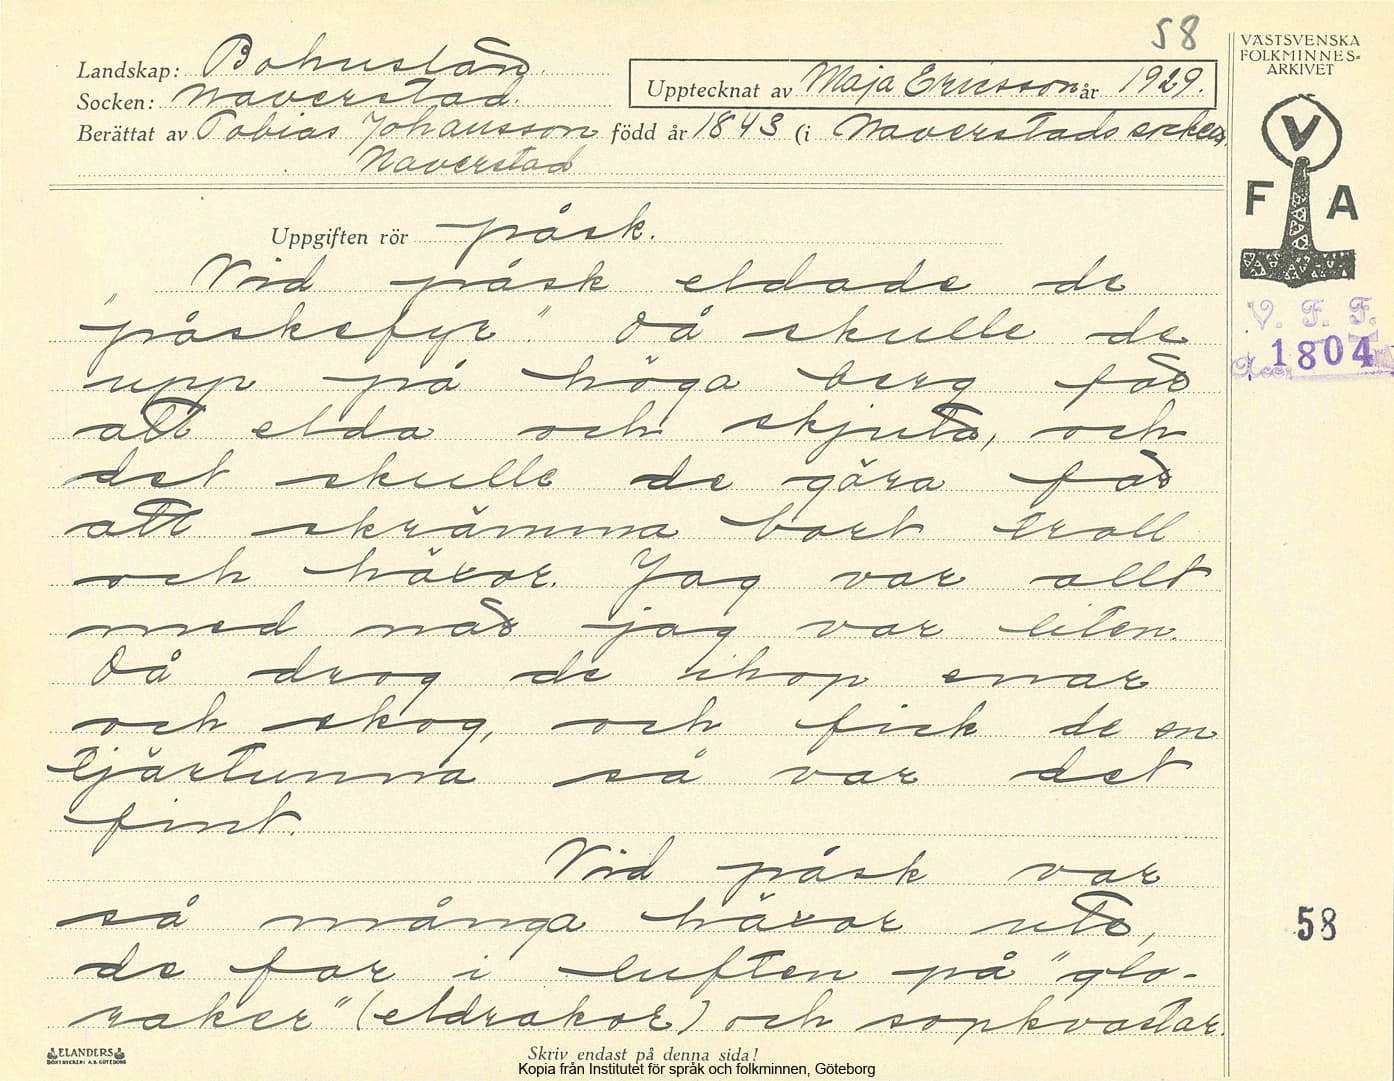 58
VÄSTSVENSKA
FOLKMINNES-
ARKIVET
Landskap: Bohuslän
Socken: Naverstad.
Upptecknat av Maja Ericsson år 1929.
Berättat av Tobias Johansson född år 1843 (i Naverstads socken,
Naverstad
V
F A
Uppgiften rör påsk.
Vid påsk eldade de
"påskefyr". Då skulle de
upp på höga berg för
att elda och skjuta, och
det skulle de göra för
att skrämma bort troll
och häxor. Jag var allt
med när jag var liten.
Då drog de ihop enar
och skog, och fick de en
tjärtunna så var det
fint.
Vid påsk var
så många häxor ute,
de for i luften på "glo-
raker" (eldrakor) och sopkvastar.
V. F. F.
Acc. 1804
58
ELANDERS
BOKTRYCKERI A.B. GÖTEBORG
Skriv endast på denna sida!
Kopia från Institutet för språk och folkminnen, Göteborg